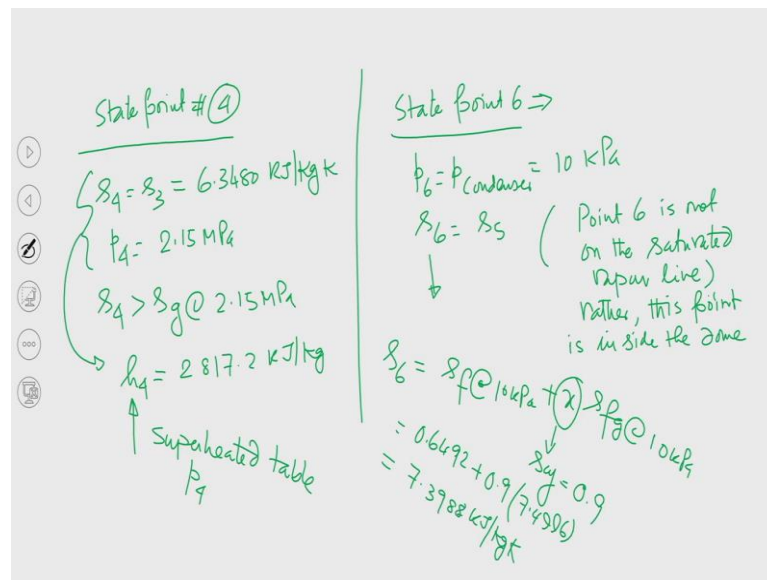 State point # 4
s4 = s3 = 6.3480 kJ/kg K
p4 = 2.15 MPa
s4 > sg @ 2.15 MPa
h4 = 2817.2 kJ/kg
Superheated table
p4
State point 6 ⇒
p6 = pcondenser = 10 kPa
s6 = s5
( Point 6 is not
on the saturated
vapour line)
rather, this point
is inside the dome
s6 = sf@10kPa + x sfg@10kPa
say = 0.9
= 0.6492 + 0.9(7.4996)
= 7.3988 kJ/kgK